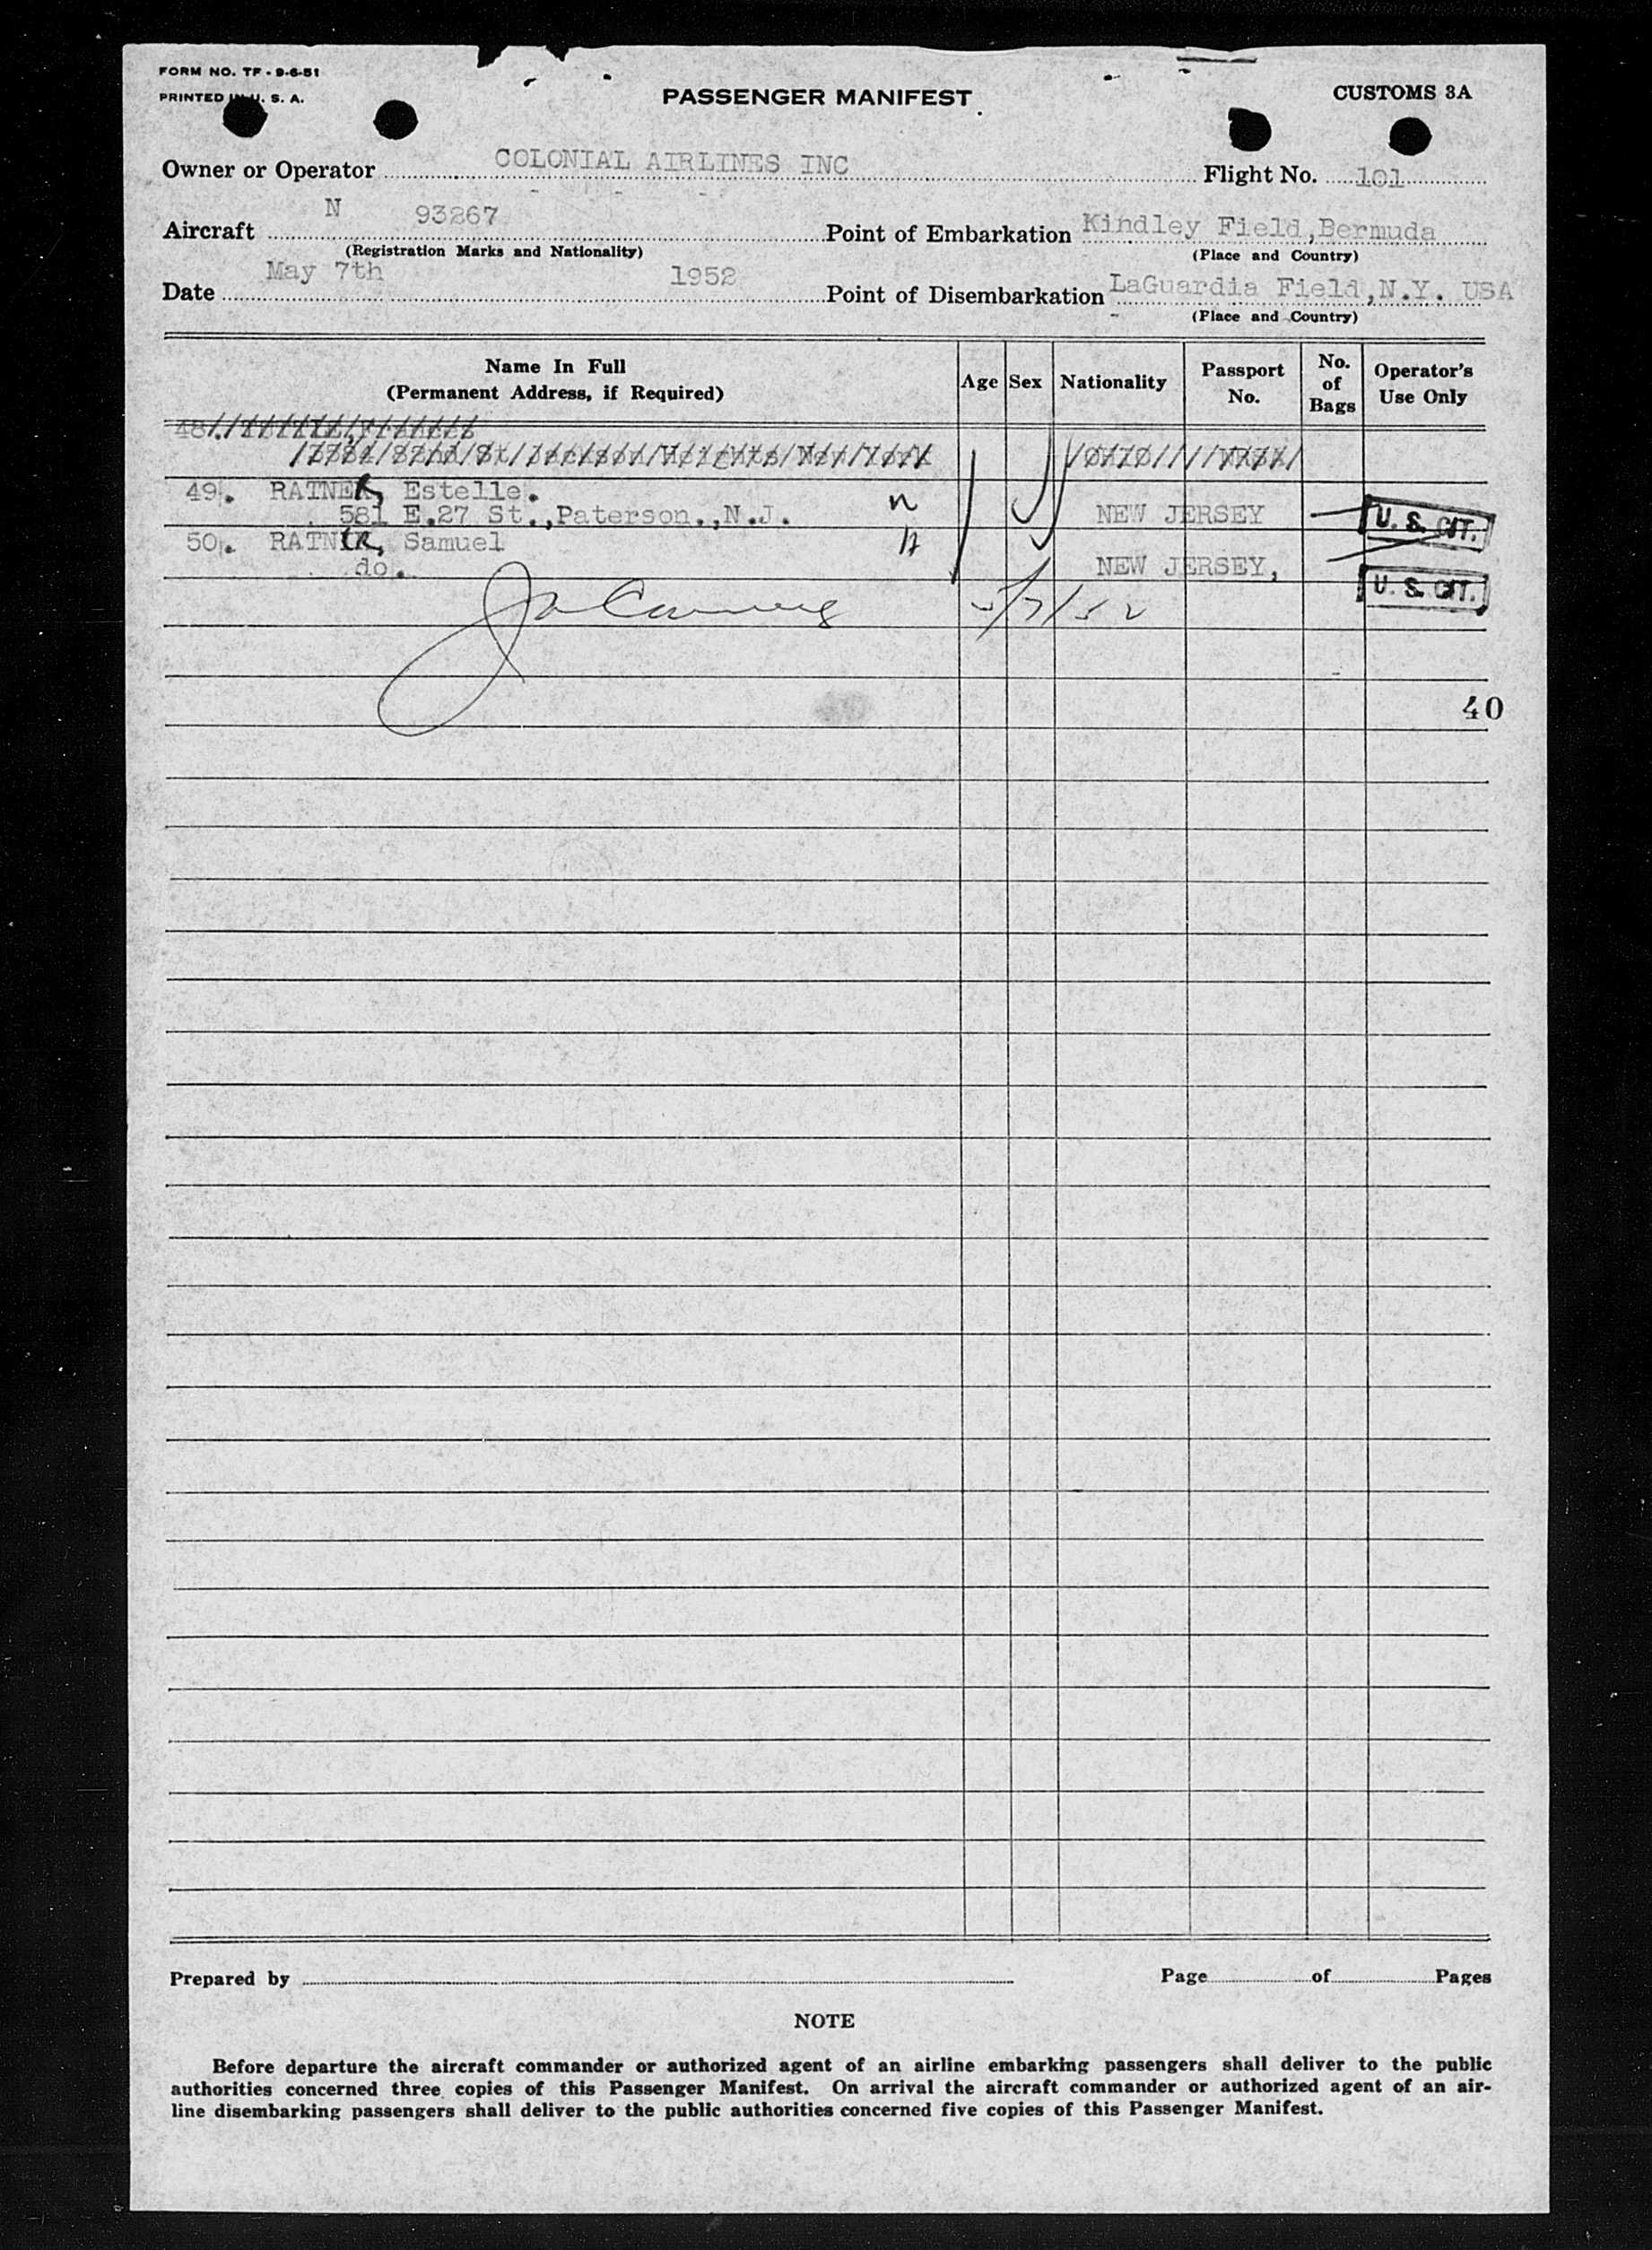 FORM NO. TF - 9-6-51
PRINTED IN U. S. A.
PASSENGER MANIFEST
CUSTOMS 3A
Owner or Operator COLONIAL AIRLINES INC
Flight No. 101
Aircraft N 93267
(Registration Marks and Nationality)
Point of Embarkation Kindley Field, Bermuda
(Place and Country)
Date May 7th 1952
Point of Disembarkation LaGuardia Field, N.Y. USA
(Place and Country)
Name In Full
(Permanent Address, if Required)
Age
Sex
Nationality
Passport
No.
No.
of
Bags
Operator's
Use Only
48.
49. RATNER, Estelle.
581 E.27 St., Paterson., N.J. n NEW JERSEY U. S. CIT.
50. RATNER, Samuel
do. NEW JERSEY, U. S. CIT.
5/7/52
40
Prepared by
Page of Pages
NOTE
Before departure the aircraft commander or authorized agent of an airline embarking passengers shall deliver to the public
authorities concerned three copies of this Passenger Manifest. On arrival the aircraft commander or authorized agent of an air-
line disembarking passengers shall deliver to the public authorities concerned five copies of this Passenger Manifest.